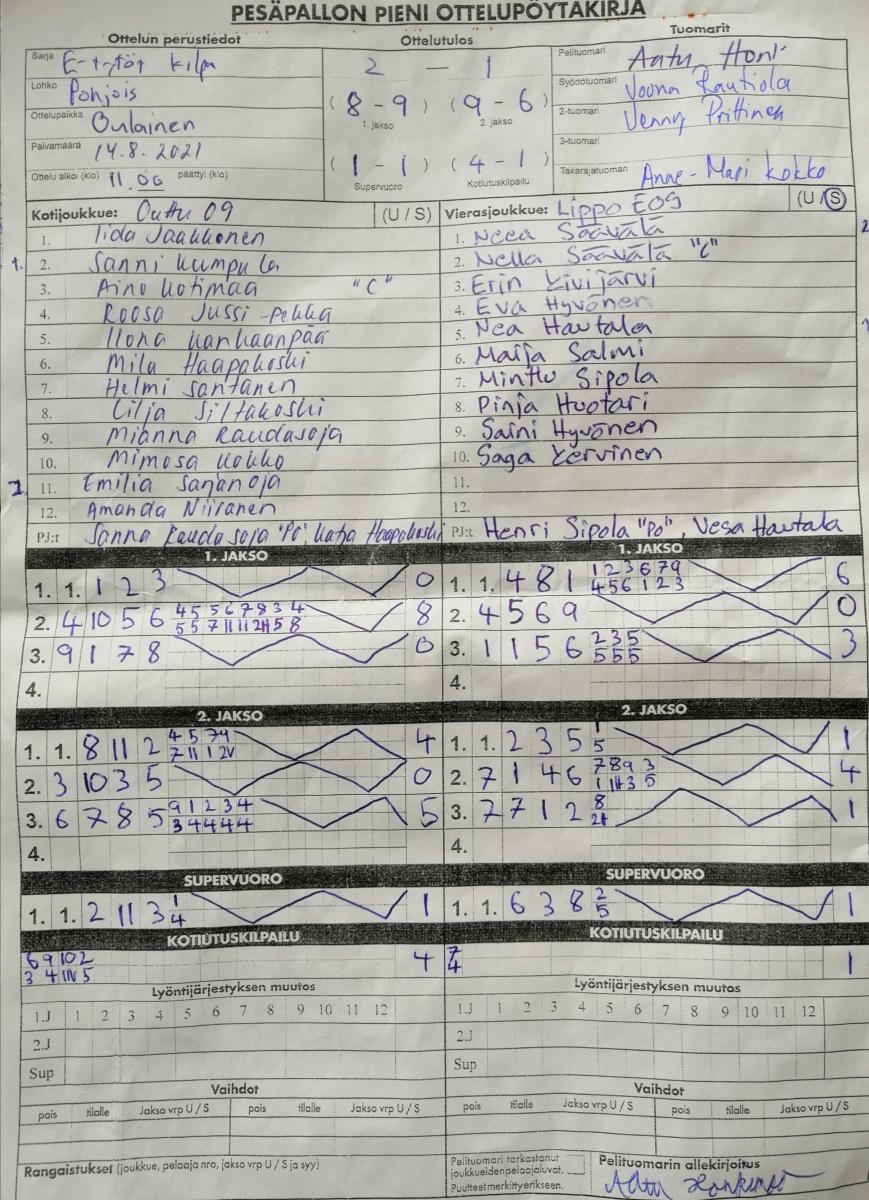 PESÄPALLON PIENI OTTELUPÖYTÄKIRJA
Ottelun perustiedot
Sarja E-tytöt kilpa
Lohko Pohjois
Ottelupaikka Oulainen
Päivämäärä 14.8.2021
Ottelu alkoi (klo) 11.00 päättyi (klo)
Ottelutulos
2 – 1
(8 – 9) (9 – 6)
1. jakso 2. jakso
(1 – 1) (4 – 1)
Supervuoro Kotiutuskilpailu
Tuomarit
Pelituomari Aatu
Syöttötuomari Joona Rautiola
2-tuomari Venny Prittinen
3-tuomari
Takarajatuomari Anne-Mari Kokko
Kotijoukkue: Outtu 09 (U / S)
1. Iida Jaakkonen
1. 2. Sanni Kumpula
3. Aino Kotimaa "C"
4. Roosa Jussi-Pekka
5. Ilona Kanhaanpää
6. Mila Haapakoski
7. Helmi Santanen
8. Lilja Siltakoski
9. Mianna Raudasoja
10. Mimosa Kokko
2. 11. Emilia Sananoja
12. Amanda Niiranen
PJ:t Sanna Raudasoja "Po", Katja Haapakoski
Vierasjoukkue: Lippo E09 (U / S)
1. Neea Säävälä 2
2. Nella Säävälä "C"
3. Erin Kivijärvi
4. Eva Hyvönen
5. Nea Hautala 1
6. Maija Salmi
7. Minttu Sipola
8. Pinja Huotari
9. Saini Hyvönen
10. Saga Kervinen
11.
12.
PJ:t Henri Sipola "Po", Vesa Hautala
1. JAKSO
1. 1. 1 2 3 0
2. 4 10 5 6 4 5 5 6 7 8 3 4 8
3. 9 1 7 8 0
4.
1. JAKSO
1. 1. 4 8 1 1 2 3 6 7 9 6
4 5 6 1 2 3
2. 4 5 6 9 0
3. 1 1 5 6 2 3 5 3
5 5 5
4.
2. JAKSO
1. 1. 8 11 2 4 5 7 9 4
2. 3 10 3 5 0
3. 6 7 8 5 9 1 2 3 4 5
3 4 4 4 4
4.
2. JAKSO
1. 1. 2 3 5 1 1
5
2. 7 1 4 6 7 8 9 3 4
3. 7 7 1 2 8 1
4.
SUPERVUORO
1. 1. 2 11 3 1 1
4
SUPERVUORO
1. 1. 6 3 8 2 1
5
KOTIUTUSKILPAILU
6 9 10 2 4
KOTIUTUSKILPAILU
7 1
4
Lyöntijärjestyksen muutos
1.J 1 2 3 4 5 6 7 8 9 10 11 12
2.J
Sup
Lyöntijärjestyksen muutos
1.J 1 2 3 4 5 6 7 8 9 10 11 12
2.J
Sup
Vaihdot
pois tilalle Jakso vrp U / S pois tilalle Jakso vrp U / S
Vaihdot
pois tilalle Jakso vrp U / S pois tilalle Jakso vrp U / S
Rangaistukset (joukkue, pelaaja nro, jakso vrp U / S ja syy)
Pelituomari tarkastanut
joukkueiden pelaajaluvat.
Puutteet merkitty erikseen.
Pelituomarin allekirjoitus